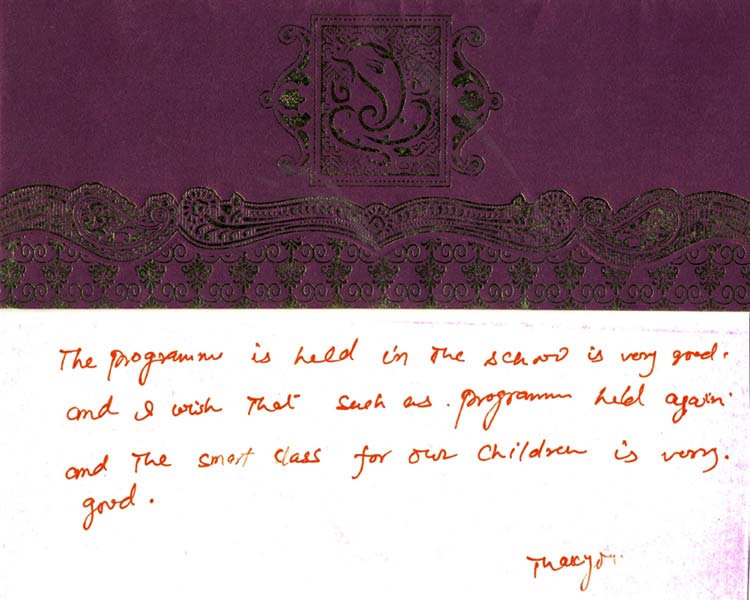 The programme is held in the school is very good.
and I wish that such as. programm held again.
and The smart class for our children is very.
good.
Thankyou